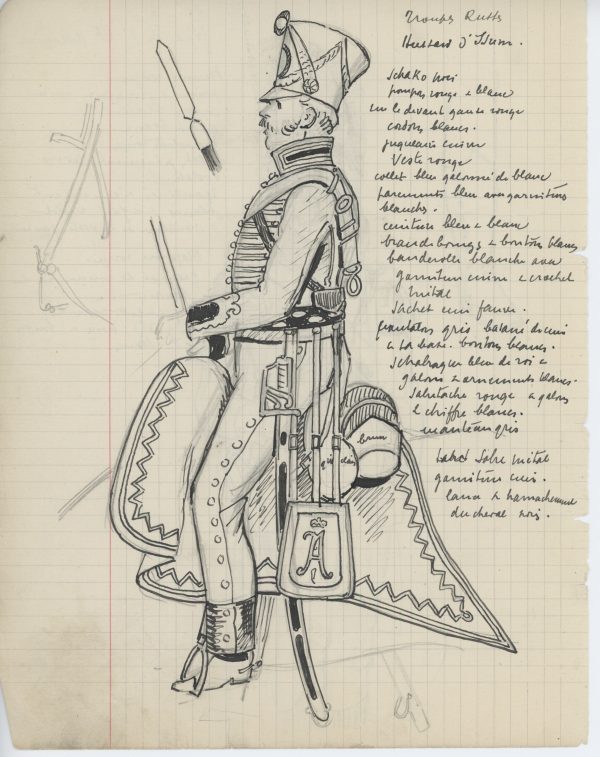 Troupes Russes
Hussard d'Isum.
Schako noir
pompon rouge & blanc
sur le devant ganse rouge
cordons blancs.
jugulaire cuivre
Veste rouge
collet bleu galonné de blanc
parements bleu avec garnitures
blanches.
ceinture bleu & blanc
brandebourgs & boutons blancs
banderolle blanche avec
garniture cuivre & crochet
métal
Sachet cuir fauve.
pantalons gris basané de cuir
à la base. boutons blancs.
Schabraque bleu de roi &
galons & ornements blancs.
Sabretache rouge & galons
& chiffre blancs.
manteau gris
Sabre métal
garniture cuir.
& harnachement
du cheval noir.
brun
gris clair
A
I